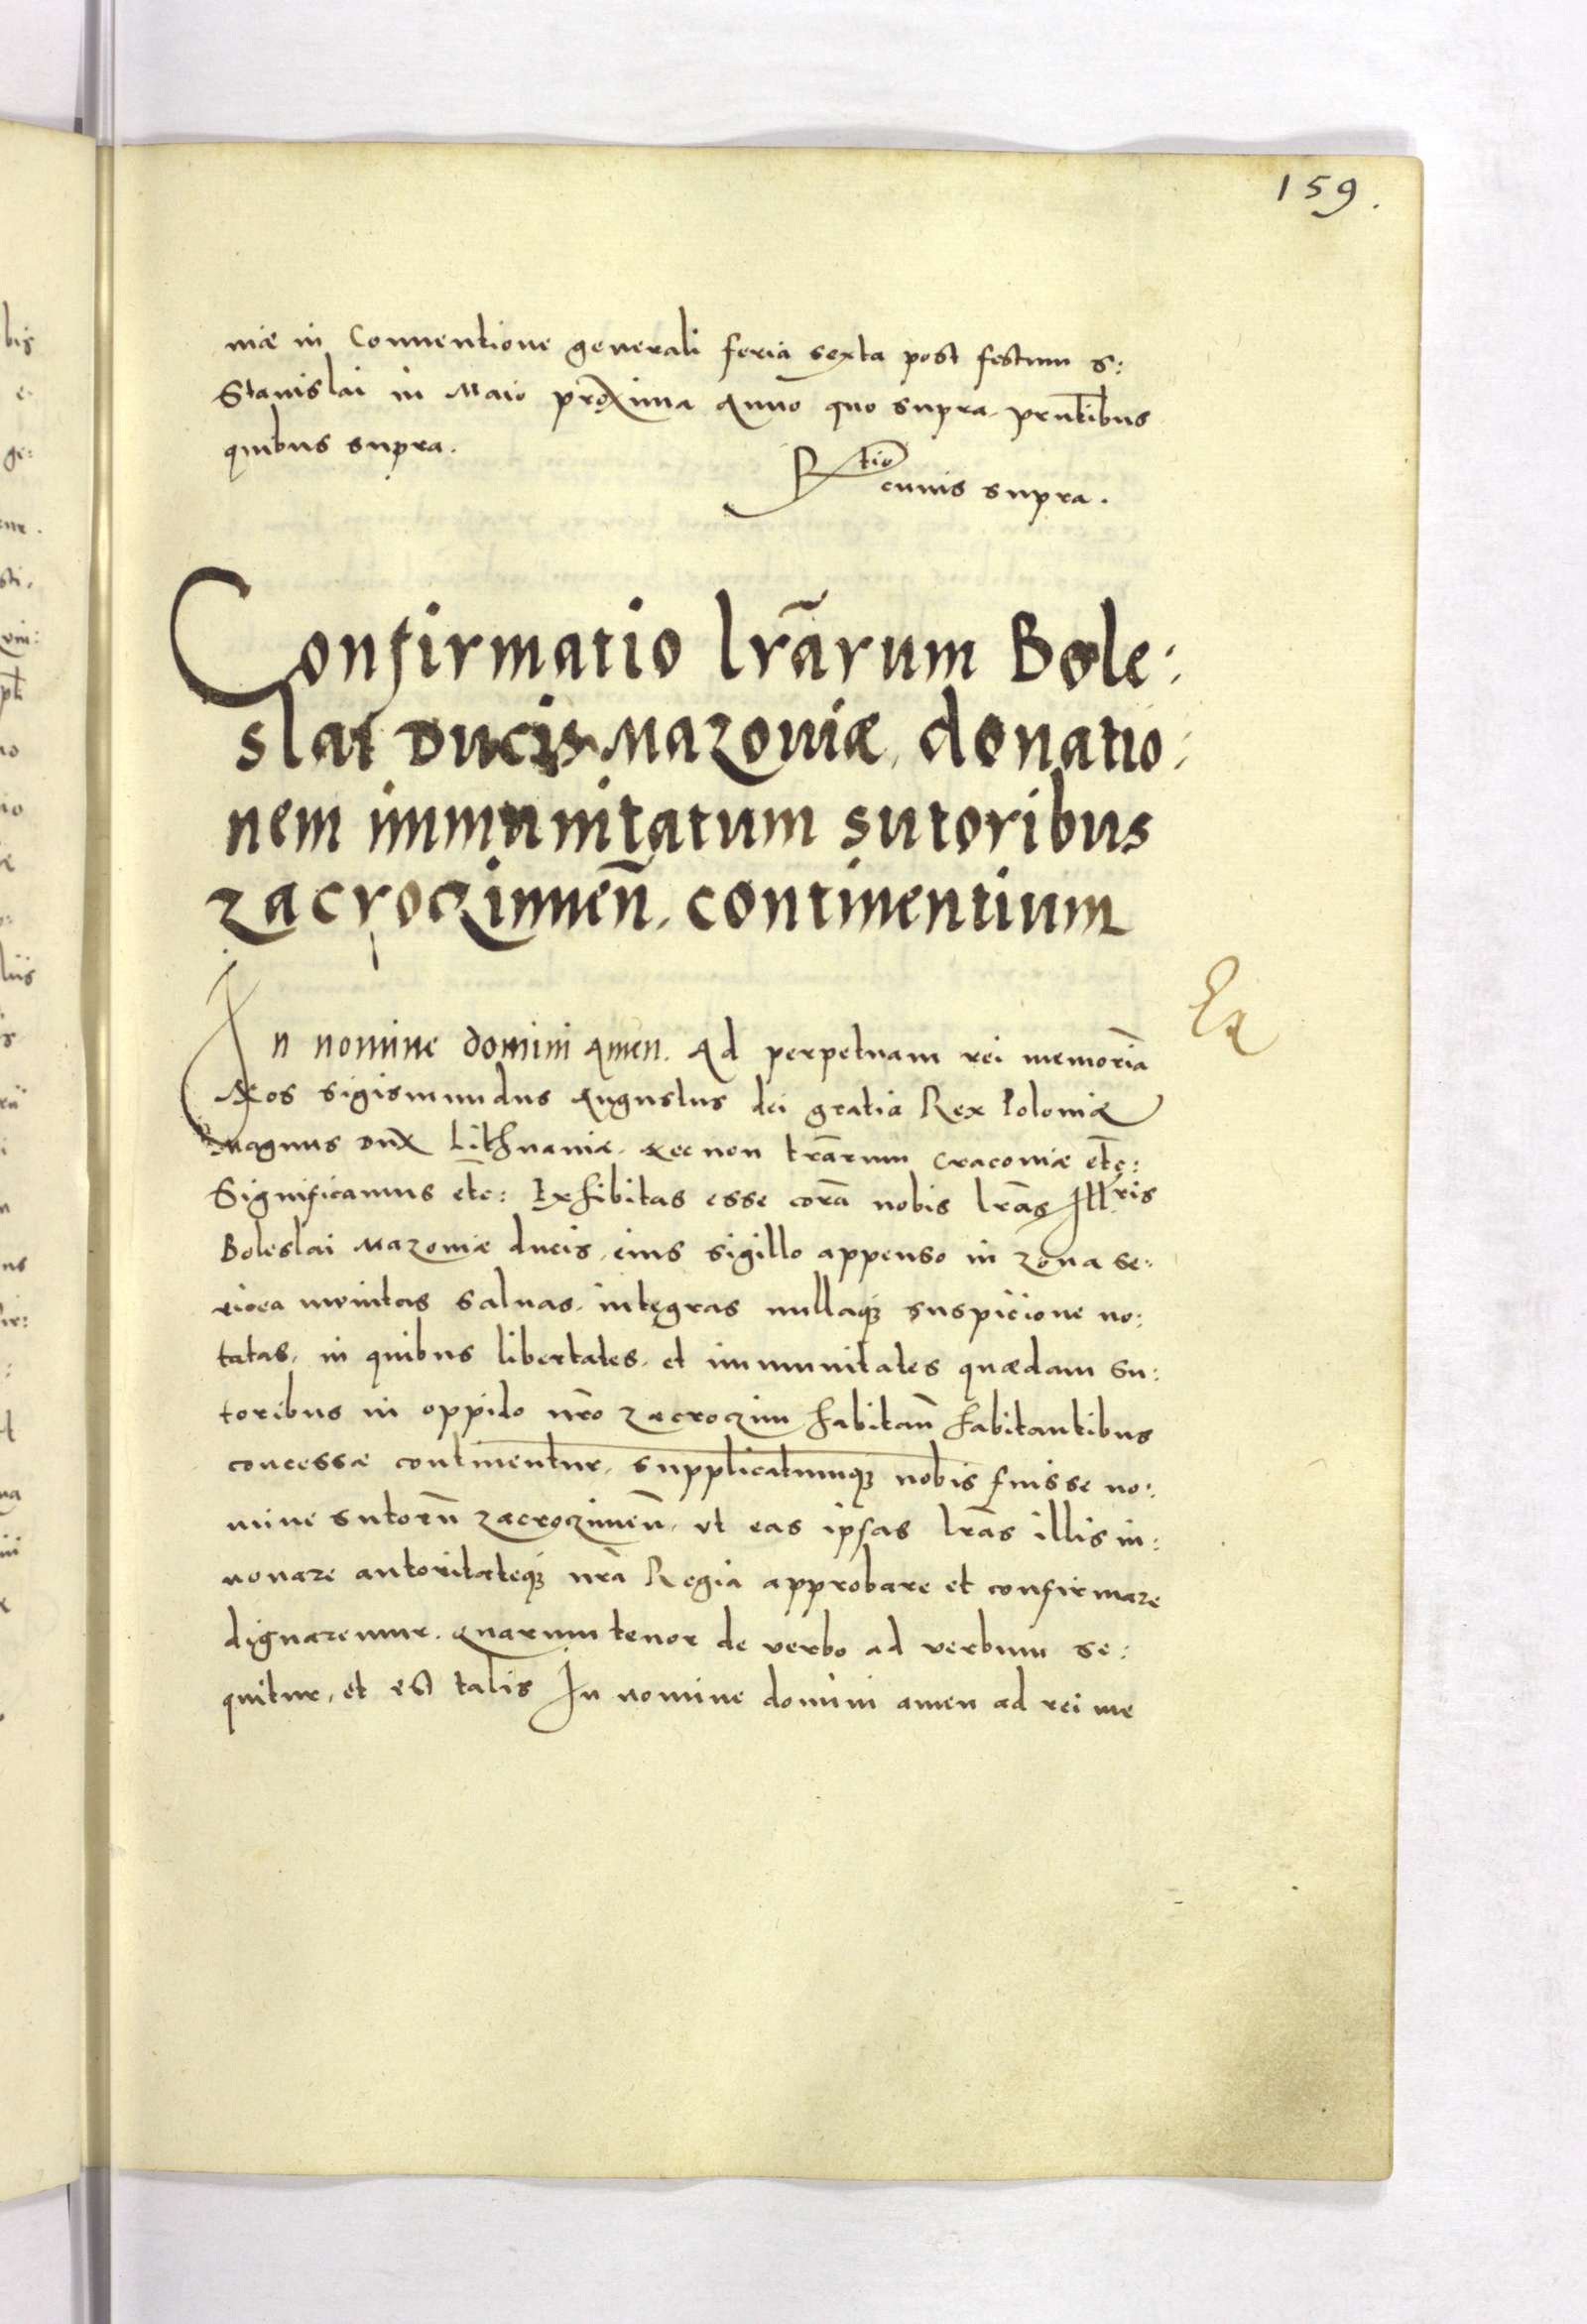 159.
niæ in Conventione generali feria sexta post festum S:
Stanislai in Maio proxima Anno quo supra. prñtibus
quibus supra.
Rtio
cuius supra.
Confirmatio lrārum Bole:
slai Ducis Mazoviæ, donatio:
nem immunitatum sutoribus
zacrocziṁen̄. continentium
In nomine domini Amen. Ad perpetuam rei memoriā
Nos Sigismundus Augustus dei gratia Rex Poloniæ
Magnus Dux Lithuaniæ. Nec non trārum Cracoviæ etc̄:
Significamus etc̄: Exhibitas esse corā nobis lrās Illris
Boleslai Mazoviæ ducis, eius sigillo appenso in zona se:
ricea munitas salvas, integras nullaq; suspicione no:
tatas, in quibus libertates, et immunitates quædam su:
toribus in oppido nrō zacroczim habitan̄ habitantibus
concessæ continentur, supplicatumq; nobis fuisse no:
mine sutorū zacroczimen̄, ut eas ipsas lrās illis in:
novare autoritateq; nrā Regia approbare et confirmare
dignaremur. Quarum tenor de verbo ad verbum se:
quitur, et est talis In nomine domini amen ad rei me